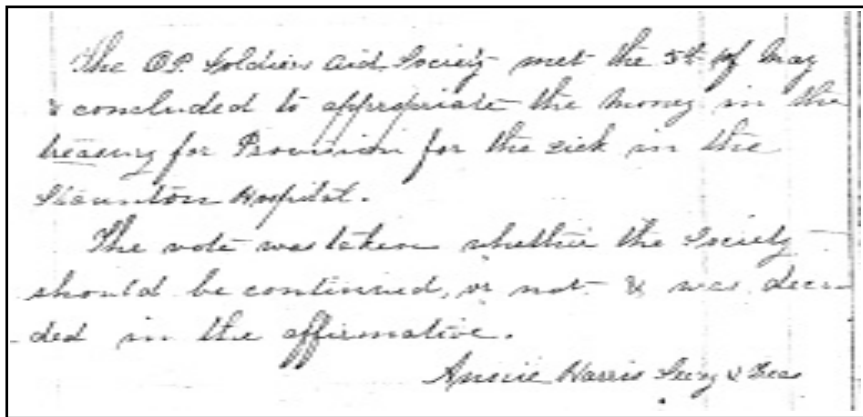 The O.P. Soldiers Aid Society met the 5th of May
& concluded to appropriate the money in the
treasury for Provision for the sick in the
Staunton Hospital.
The vote was taken whether the Society
should be continued, or not & was deci
ded in the affirmative.
Annie Harris Secy & Treas